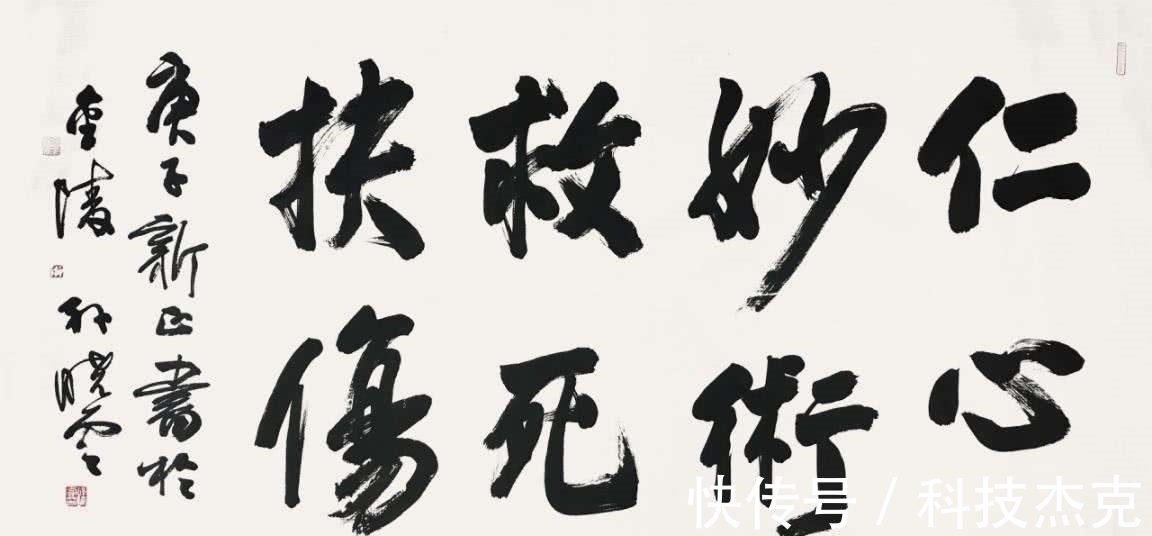 仁心
妙術
救死
扶傷
庚子新正書於
金陵 孫曉雲
快传号 / 科技杰克